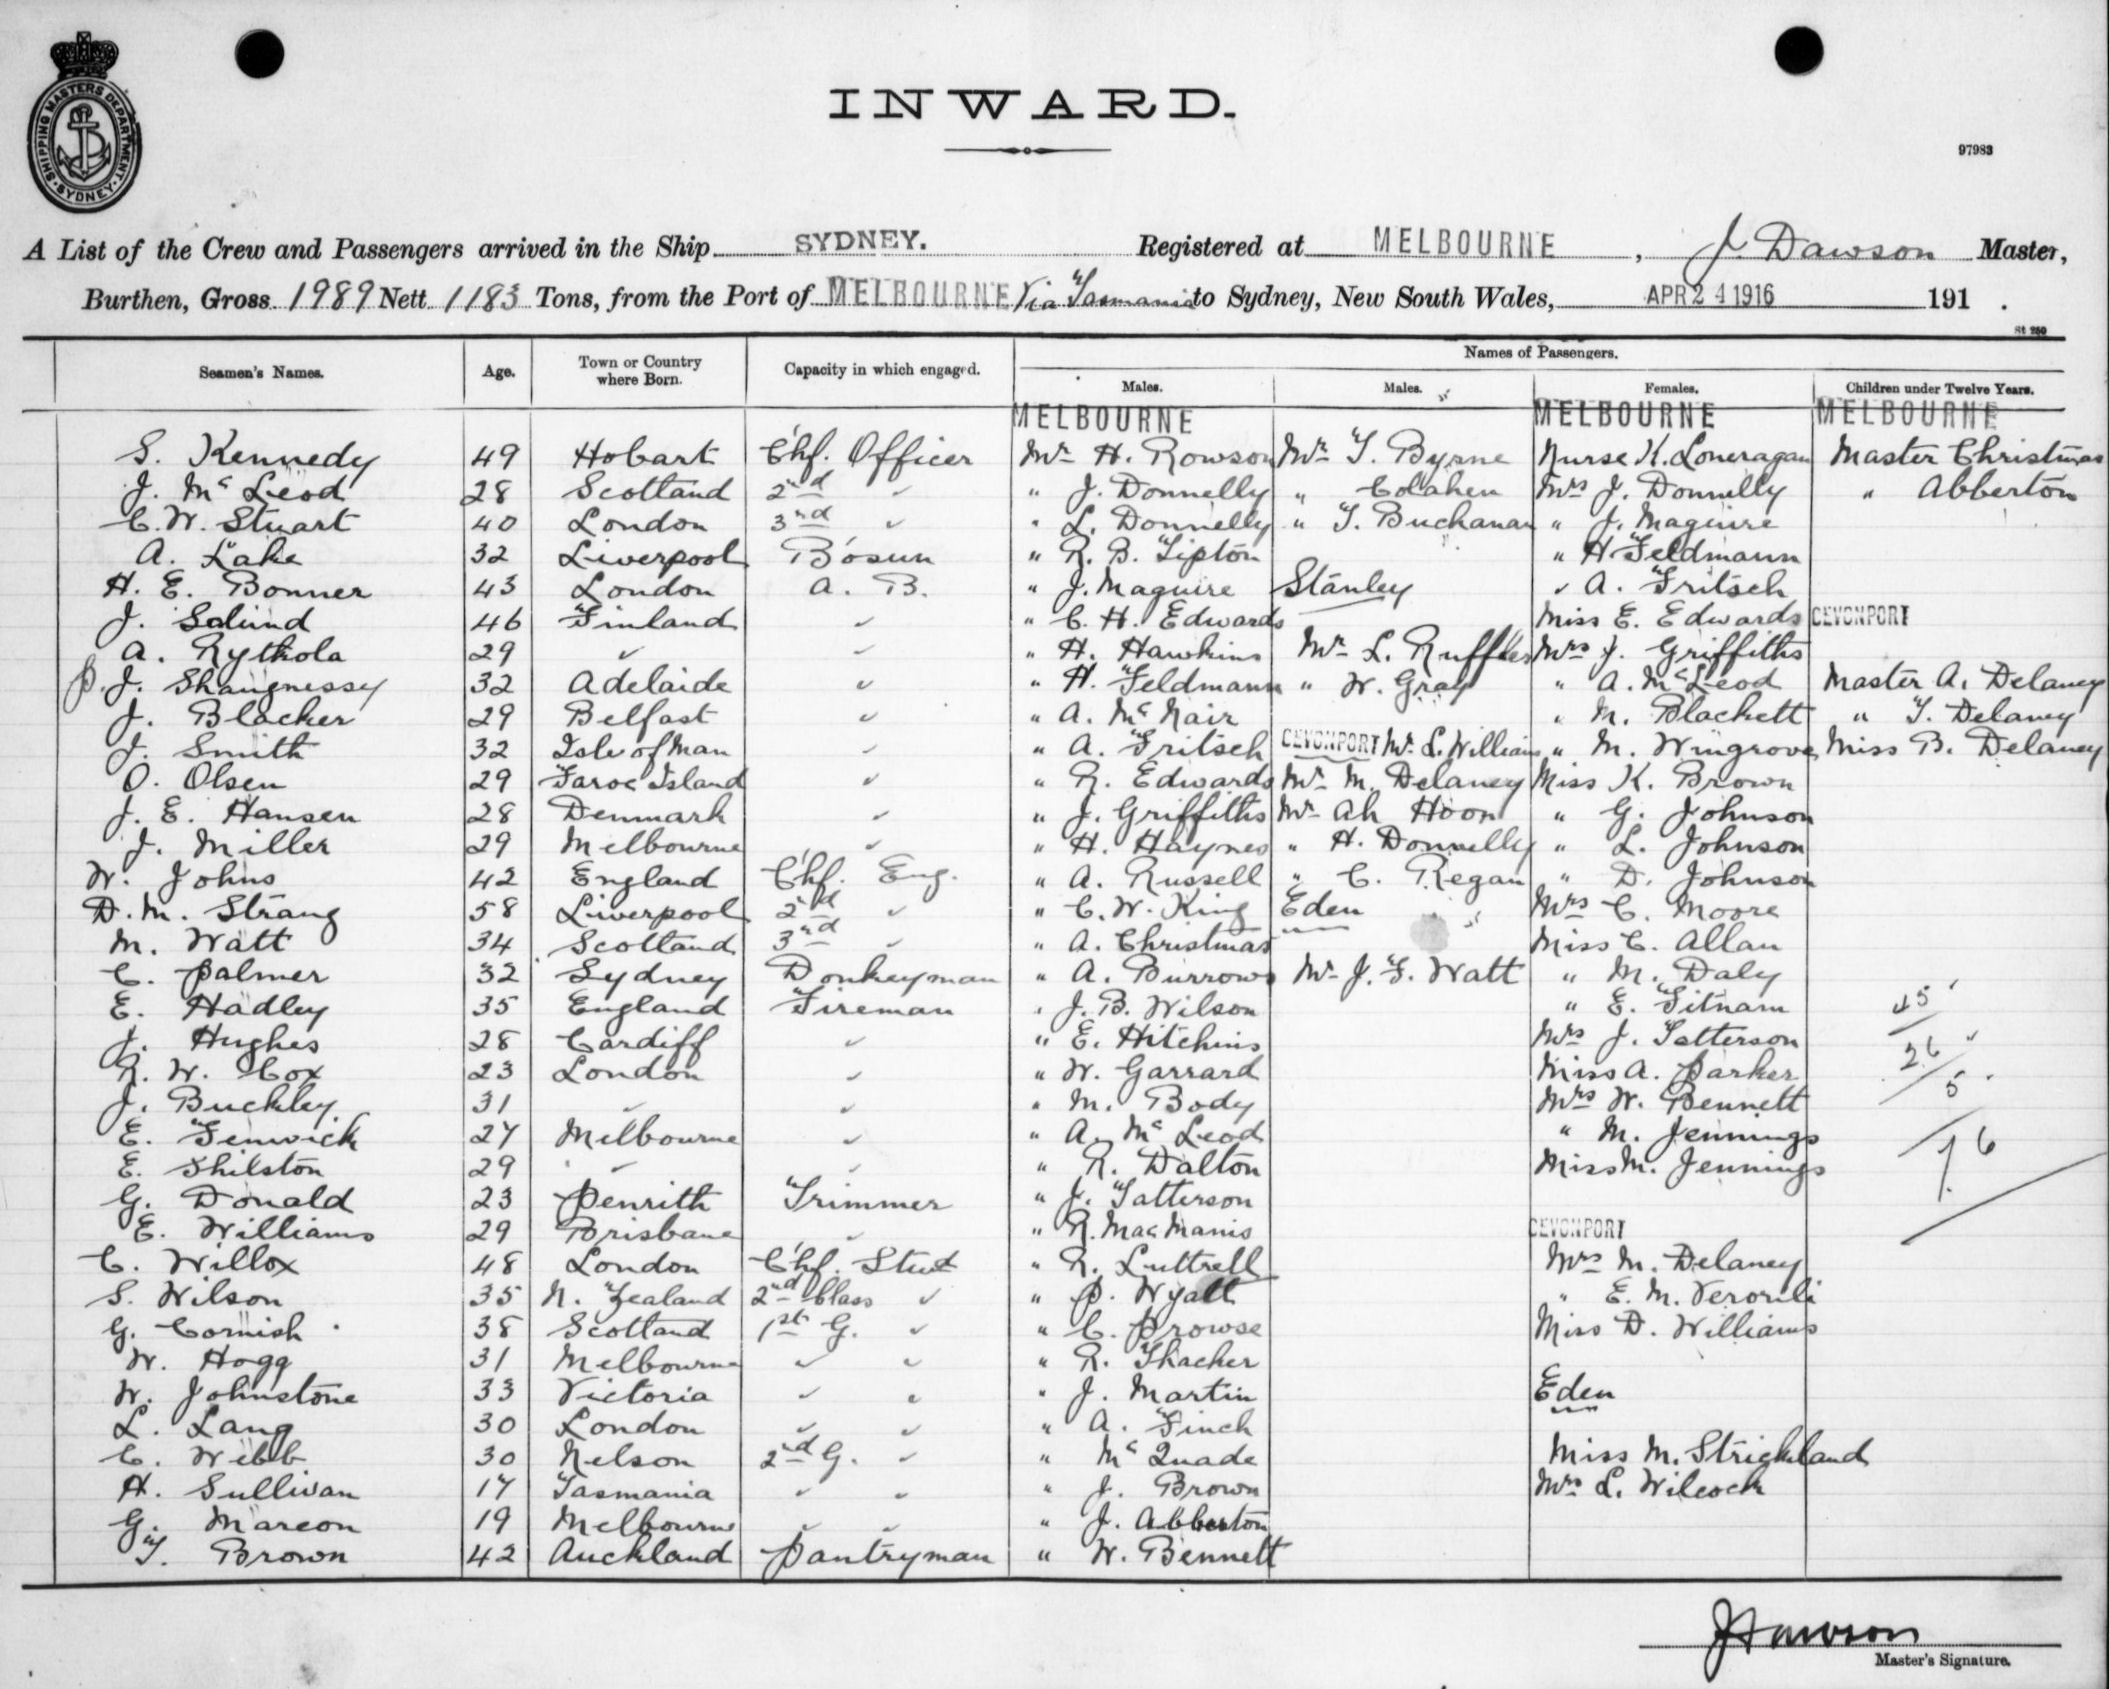 SHIPPING MASTERS DEPARTMENT.
SYDNEY
INWARD.
97983
A List of the Crew and Passengers arrived in the Ship SYDNEY. Registered at MELBOURNE, J. Dawson Master,
Burthen, Gross 1989 Nett 1183 Tons, from the Port of MELBOURNE Via Tasmania to Sydney, New South Wales, APR 24 1916 191 .
St 250
Seamen's Names. Age. Town or Country where Born. Capacity in which engaged. Names of Passengers.
Males. Males. Females. Children under Twelve Years.
MELBOURNE MELBOURNE MELBOURNE
S. Kennedy 49 Hobart Chf. Officer Mr H. Rowson Mr T. Byrne Nurse K. Loneragan Master Christmas
J. McLeod 28 Scotland 2nd ✓ " J. Donnelly " Colahen Mrs J. Donnelly " Abberton
C. W. Stuart 40 London 3rd ✓ " L. Donnelly " T. Buchanan " J. Maguire
A. Lake 32 Liverpool Bosun " R. B. Tipton " H. Feldmann
H. E. Bonner 43 London A. B. " J. Maguire Stanley " A. Fritsch
J. Salund 46 Finland ✓ " C. H. Edwards Miss E. Edwards DEVONPORT
A. Rythola 29 ✓ ✓ " H. Hawkins Mr L. Ruffles Mrs J. Griffiths
P. J. Shaugnessy 32 Adelaide ✓ " H. Feldmann " W. Gray " A. McLeod Master A. Delaney
J. Blacker 29 Belfast ✓ " A. McNair " M. Blackett " T. Delaney
J. Smith 32 Isle of Man ✓ " A. Fritsch DEVONPORT Mr L. Williams " M. Wingrove Miss B. Delaney
O. Olsen 29 Faroe Island ✓ " R. Edwards Mr M. Delaney Miss K. Brown
J. E. Hansen 28 Denmark ✓ " J. Griffiths Mr Ah Hoon " G. Johnson
J. Miller 29 Melbourne ✓ " H. Haynes " H. Donnelly " L. Johnson
W. Johns 42 England Chf. Eng. " A. Russell " C. Regan " D. Johnson
D. M. Strang 58 Liverpool 2nd ✓ " C. W. King Eden Mrs C. Moore
M. Watt 34 Scotland 3rd ✓ " A. Christmas Miss C. Allan
C. Palmer 32 Sydney Donkeyman " A. Burrows Mr J. F. Watt " M. Daly
E. Hadley 35 England Fireman " J. B. Wilson " E. Titnam 45
J. Hughes 28 Cardiff ✓ " E. Hitchins Mrs J. Tatterson
R. W. Cox 23 London ✓ " W. Garrard Miss A. Parker 26
J. Buckley 31 ✓ ✓ " M. Body Mrs W. Bennett 5
E. Fenwick 27 Melbourne ✓ " A. McLeod " M. Jennings 76
E. Shilston 29 ✓ ✓ " R. Dalton Miss M. Jennings
G. Donald 23 Penrith Trimmer " J. Tatterson
E. Williams 29 Brisbane ✓ " R. MacManis DEVONPORT
C. Willox 48 London Chf. Stwt " R. Luttrell Mrs M. Delaney
S. Wilson 35 N. Zealand 2nd Class ✓ " P. Wyatt " E. M.
G. Cornish 38 Scotland 1st G. ✓ " C. Prowse Miss D. Williams
W. Hogg 31 Melbourne ✓ ✓ " R. Thacker
W. Johnstone 33 Victoria ✓ ✓ " J. Martin Eden
L. Lang 30 London ✓ ✓ " A. Finch
C. Webb 30 Nelson 2nd G. ✓ " McQuade Miss M. Strickland
H. Sullivan 17 Tasmania ✓ ✓ " J. Brown Mrs L. Wilcock
G. Mareon 19 Melbourne ✓ ✓ " J. Abberton
T. Brown 42 Auckland Pantryman " W. Bennett
J Dawson
Master's Signature.